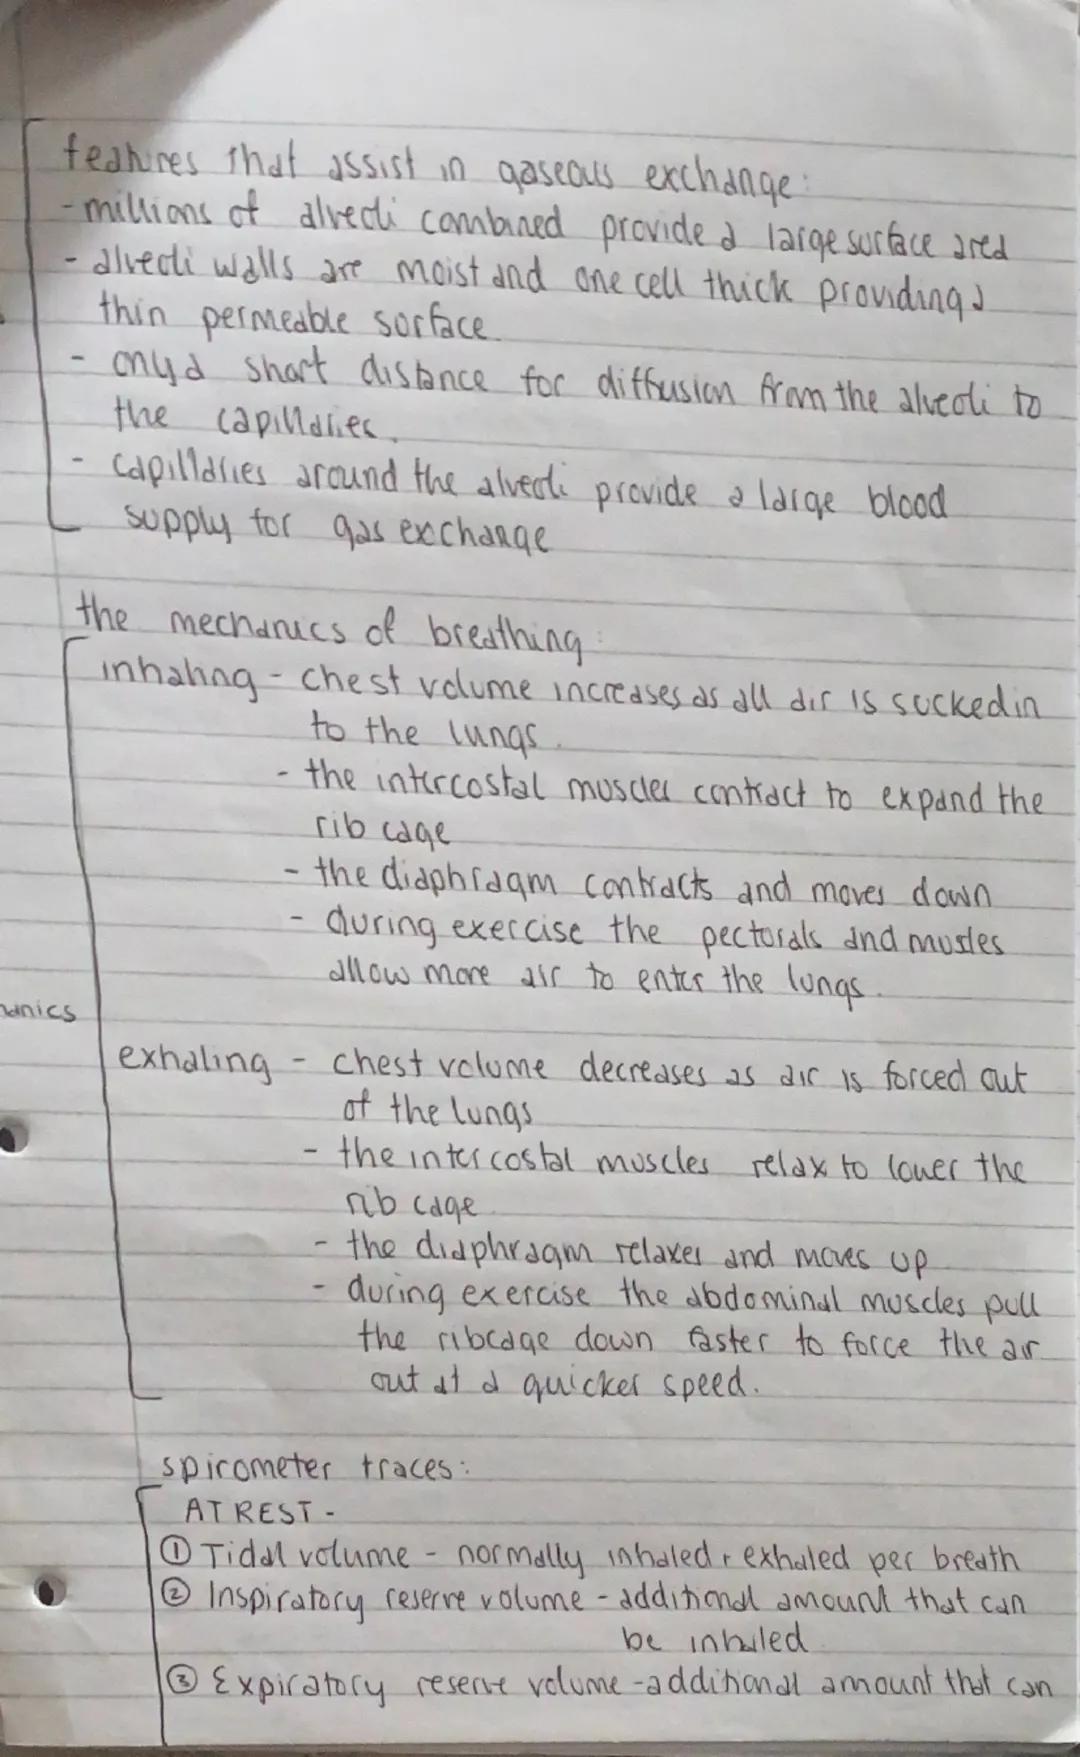 features that assist in gaseous exchange:
- millions of alveoli combined provide a large surface area
- alveoli walls are moist and one cell thick providing a
thin permeable sorface.
- only a short distance for diffusion from the alveoli to
the capillaries.
- capillaries around the alveoli provide a large blood
supply for gas exchange
the mechanics of breathing:
inhaling - chest volume increases as all air is sucked in
to the lungs.
- the intercostal muscles contract to expand the
rib cage
- the diaphragm contracts and moves down
- during exercise the pectorals and musles
allow more air to enter the lungs.
anics
exhaling - chest volume decreases as air is forced out
of the lungs
- the intercostal muscles relax to lower the
rib cage
- the diaphragm relaxes and moves up
- during exercise the abdominal muscles pull
the ribcage down faster to force the air
out at a quicker speed.
spirometer traces:
AT REST -
① Tidal volume - normally inhaled + exhaled per breath
② Inspiratory reserve volume - additional amount that can
be inhaled
③ Expiratory reserve volume - additional amount that can